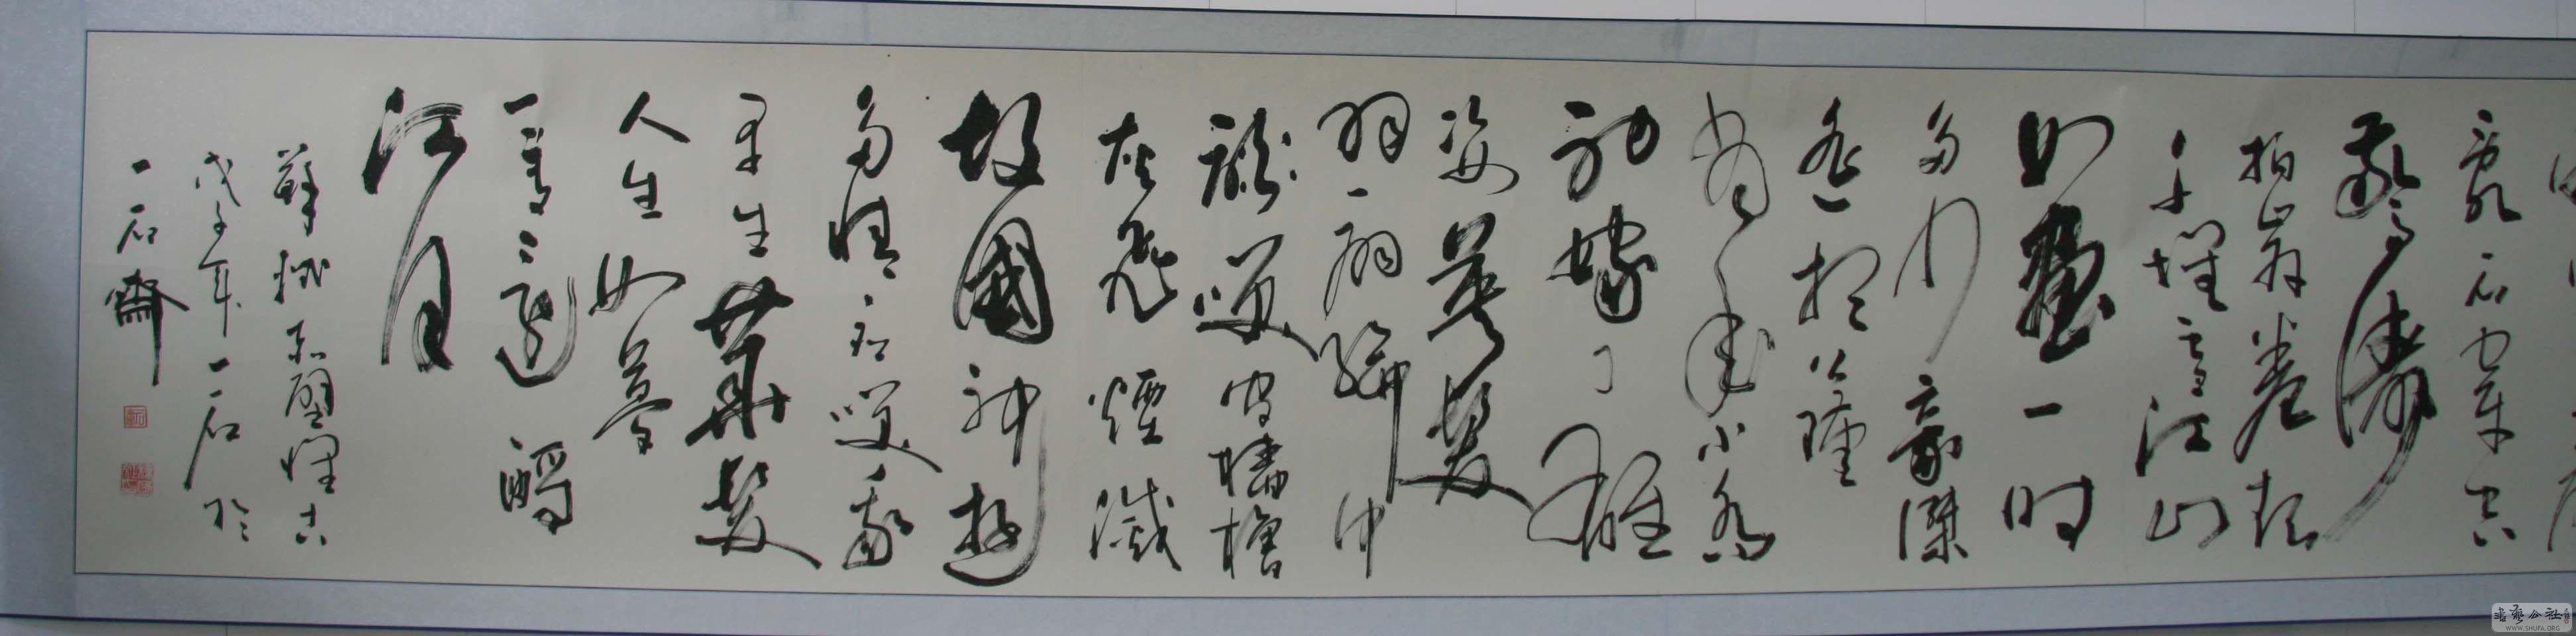 亂石穿空
驚濤
拍岸卷起
千堆雪江山
如畫一時
多少豪傑
遙想公瑾
當年小喬
初嫁了雄
姿英發
羽扇綸巾
談笑間檣櫓
灰飛煙滅
故國神遊
多情應笑我
早生華髮
人生如夢
一尊還酹
江月
蘇軾赤壁懷古
戊子年一石於
一石齋
WWW.SHUFA.ORG